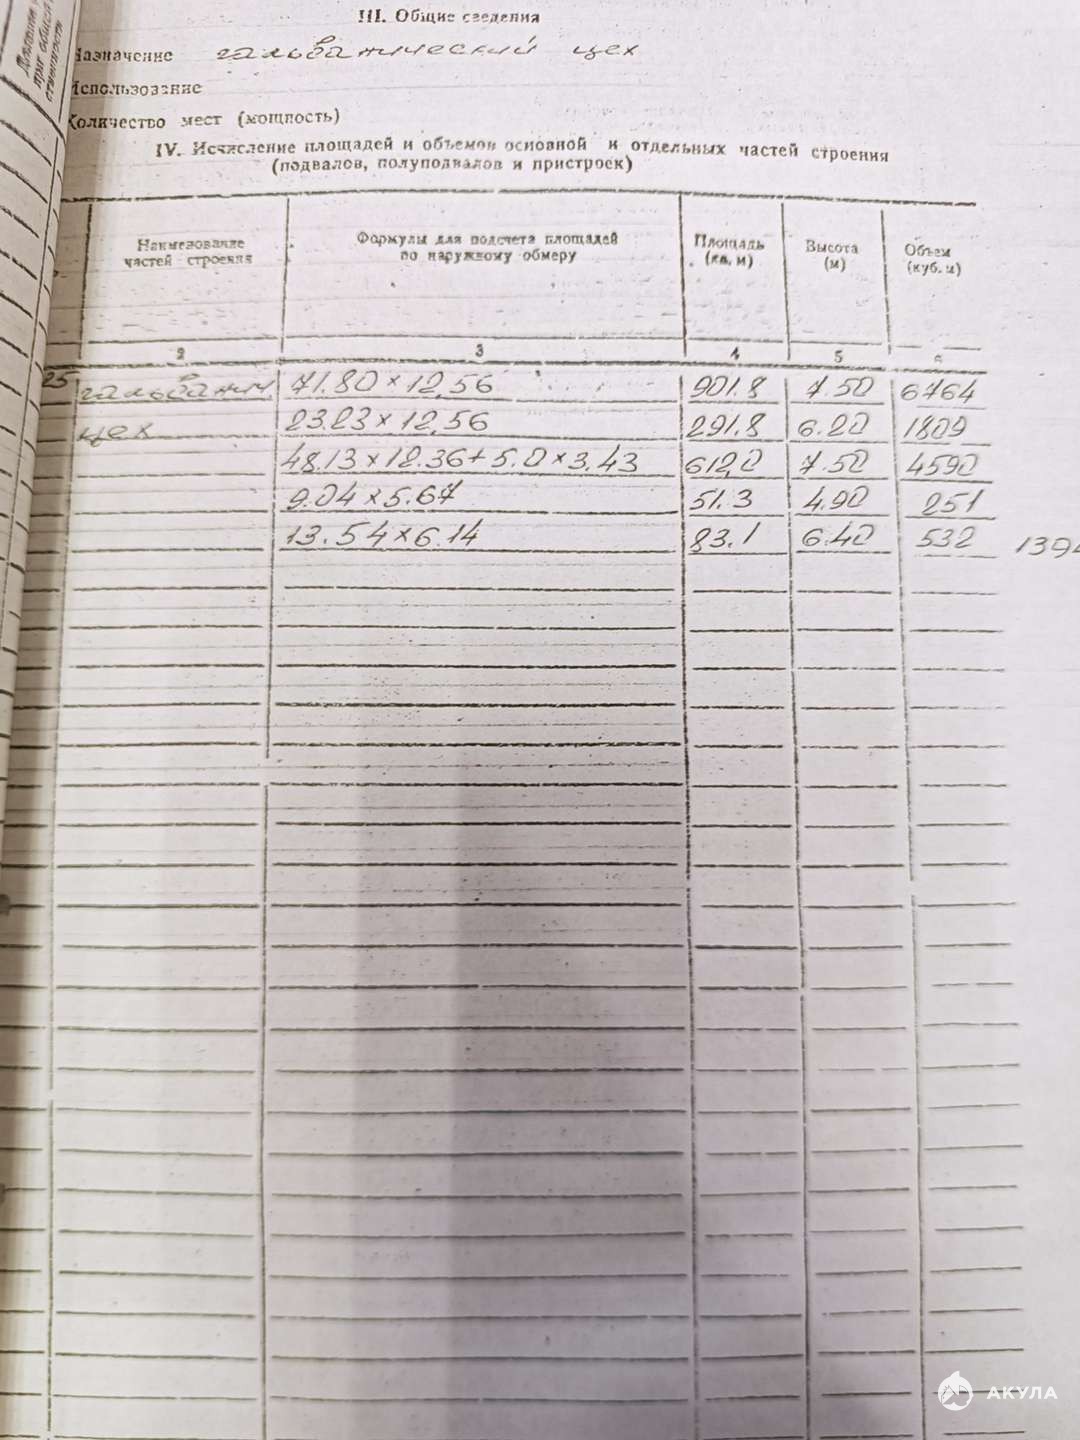 III. Общие сведения
Назначение гальванический цех
Использование
Количество мест (мощность)
IV. Исчисление площадей и объемов основной и отдельных частей строения
(подвалов, полуподвалов и пристроек)
Наименование частей строения Формулы для подсчета площадей по наружному обмеру Площадь (кв. м) Высота (м) Объем (куб. м)
2 3 4 5 6
25 гальванич 71.80 × 12,56 901.8 7.50 6764
цех 23.23 × 12,56 291.8 6.20 1809
48.13 × 12.36 + 5.0 × 3.43 612,0 7.50 4590
9.04 × 5.67 51.3 4.90 251
13.54 × 6.14 83.1 6.40 532 1394
АКУЛА